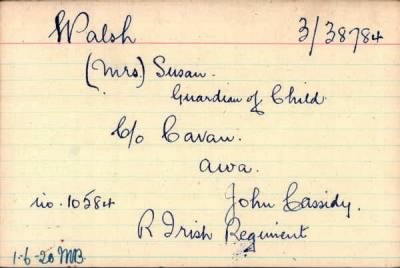 Walsh 3/38784
(Mrs.) Susan.
Guardian of Child.
C/o Cavan.
awa.
no. 10584 John Cassidy.
R Irish Regiment
1-6-20 MB.